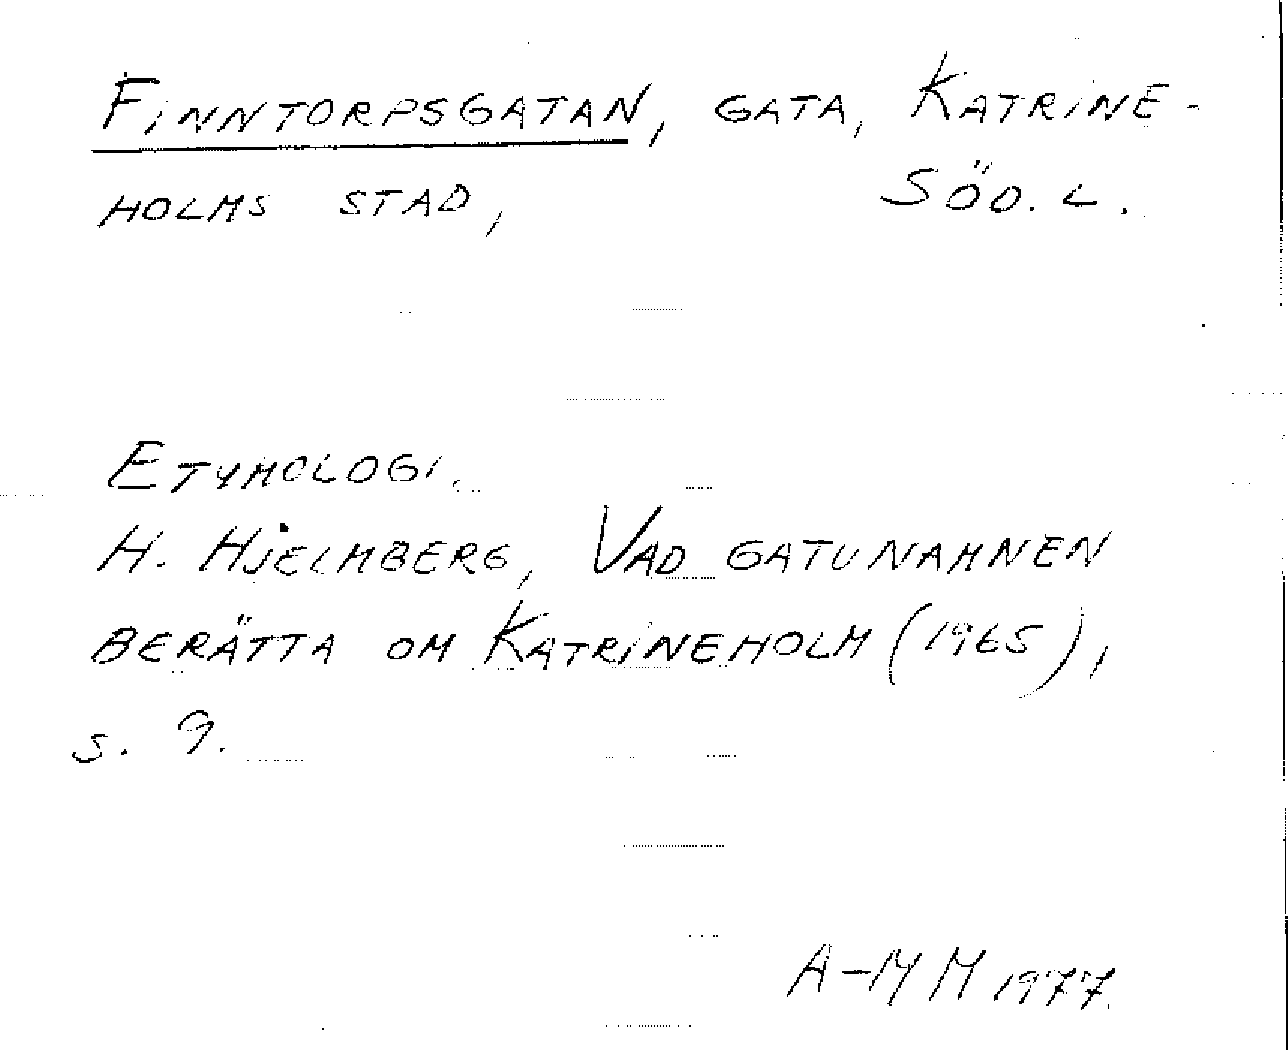 Finntorpsgatan, gata, Katrine-
holms stad, Söd. l.
Etymologi.
H. Hjelmberg, Vad gatunamnen
berätta om Katrineholm (1965),
s. 9.
A-M M 1977.